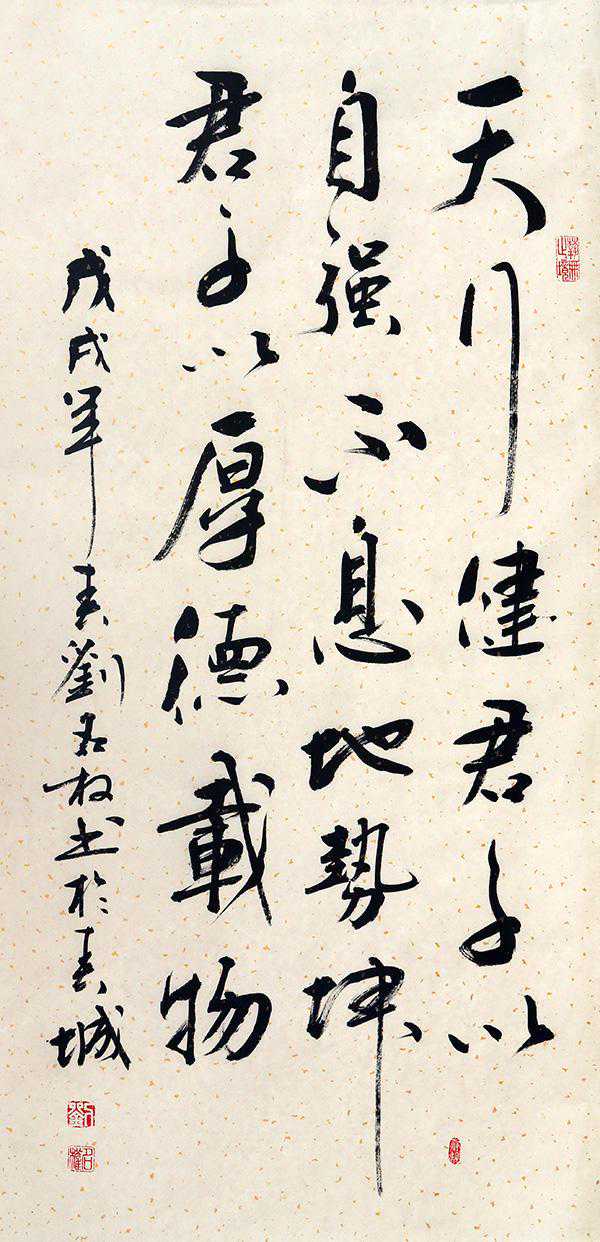 天行健君子以
自强不息地势坤
君子以厚德載物
戊戌年春劉名权书於春城